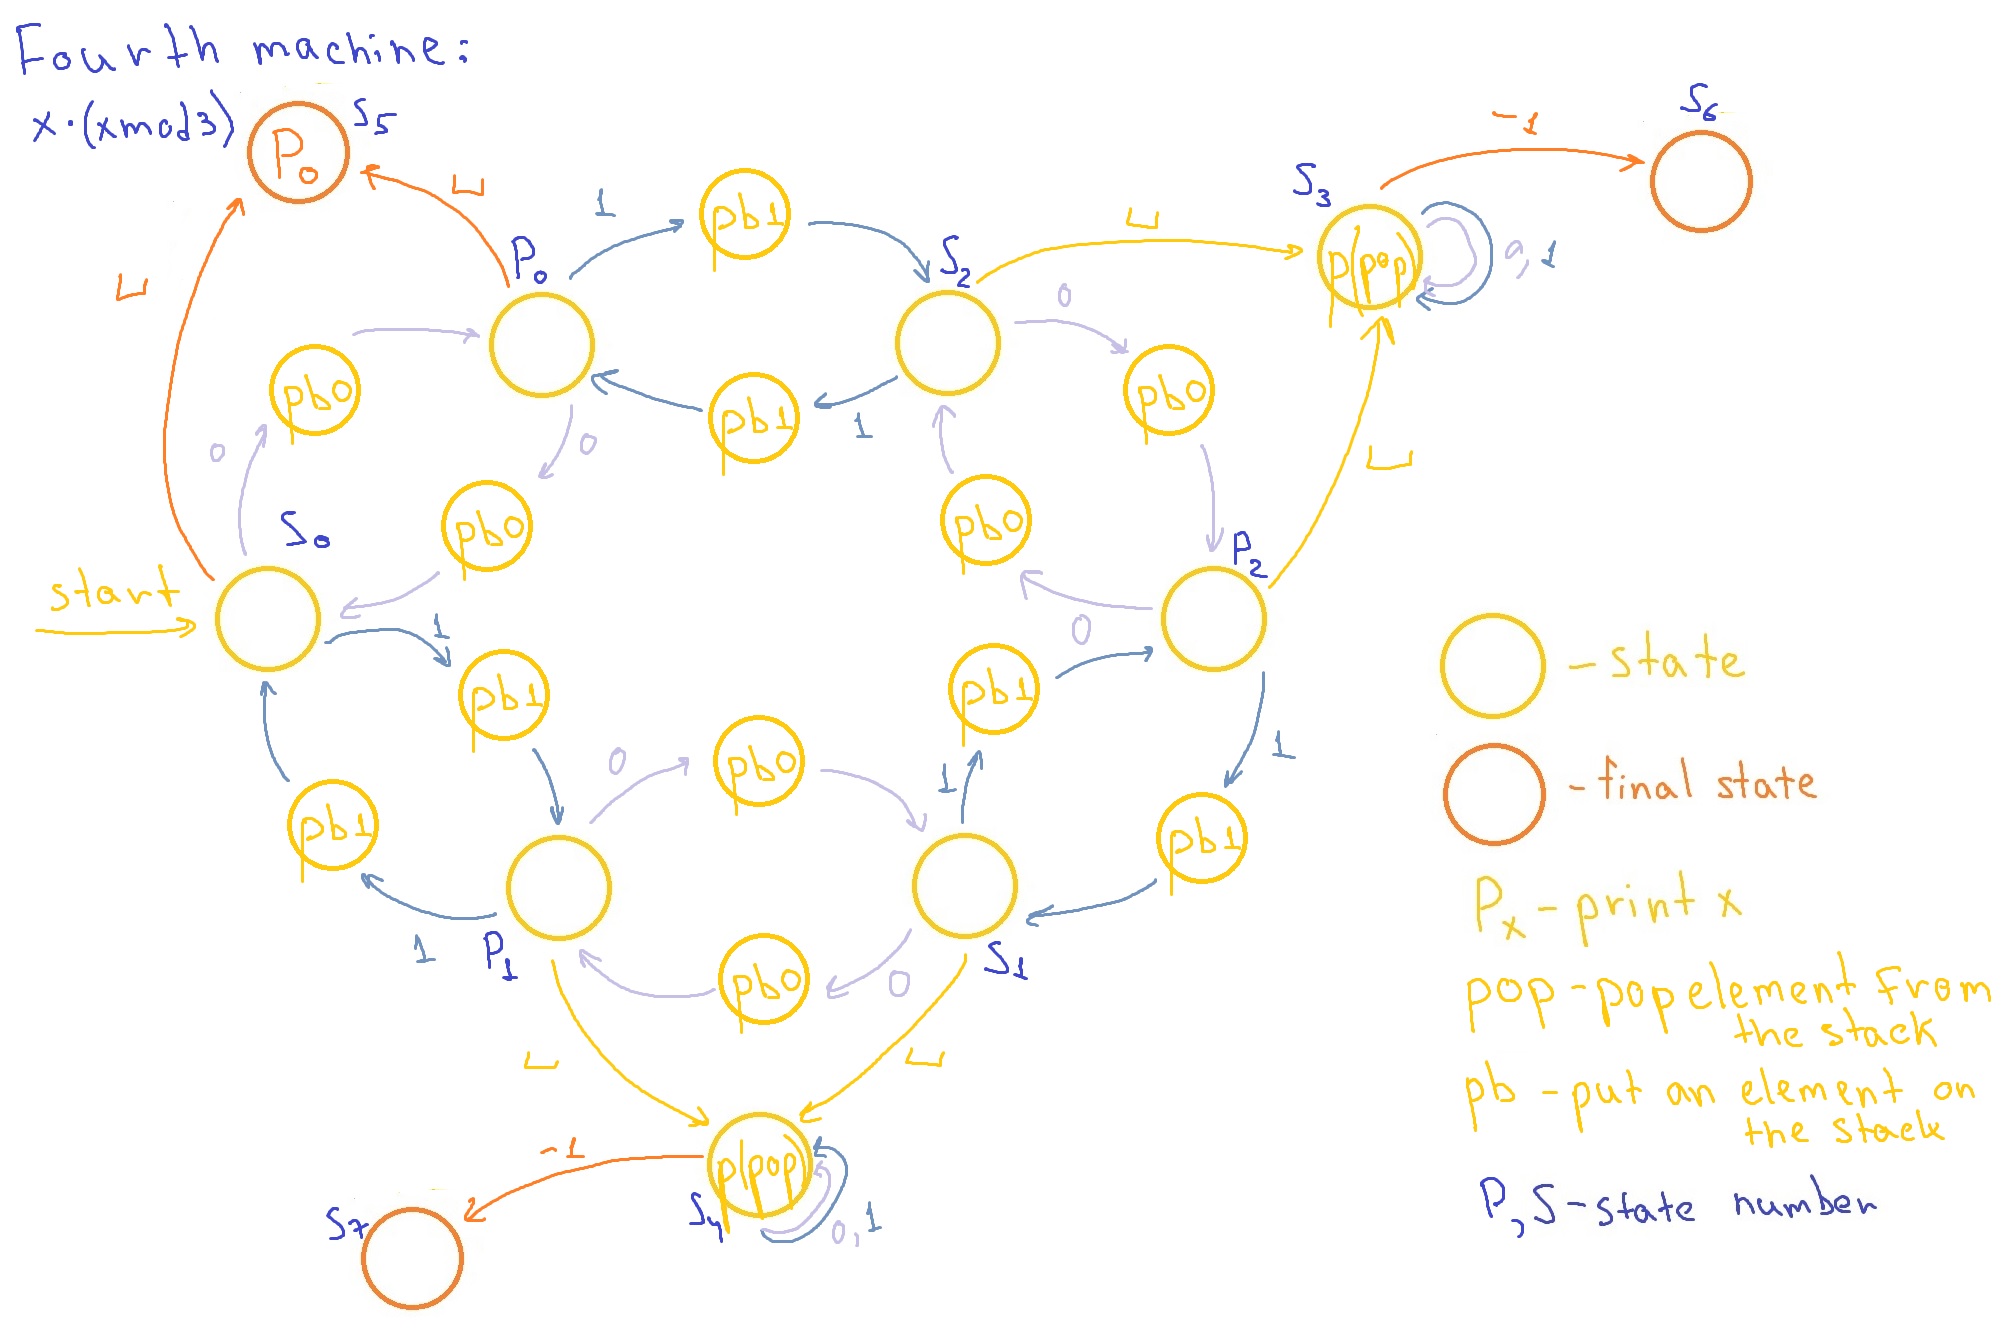 Fourth machine:
x·(xmod3)
P₀
S₅
␣
1
pb1
S₂
␣
S₃
p(pop)
0,1
-1
S₆
␣
P₀
pb0
0
0
pb1
1
0
pb0
S₀
pb0
pb0
P₂
␣
start
1
pb1
pb1
0
1
1
pb1
0
pb0
pb1
1
P₁
pb0
0
S₁
␣
␣
-1
p(pop)
S₄
0,1
S₇
-state
-final state
Pₓ-print x
pop-pop element from
the stack
pb-put an element on
the stack
P,S-state number